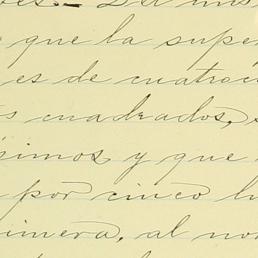 que la supe
es de cuatroci
s cuadrados, s
simos y que
por cinco l
rimera, al no